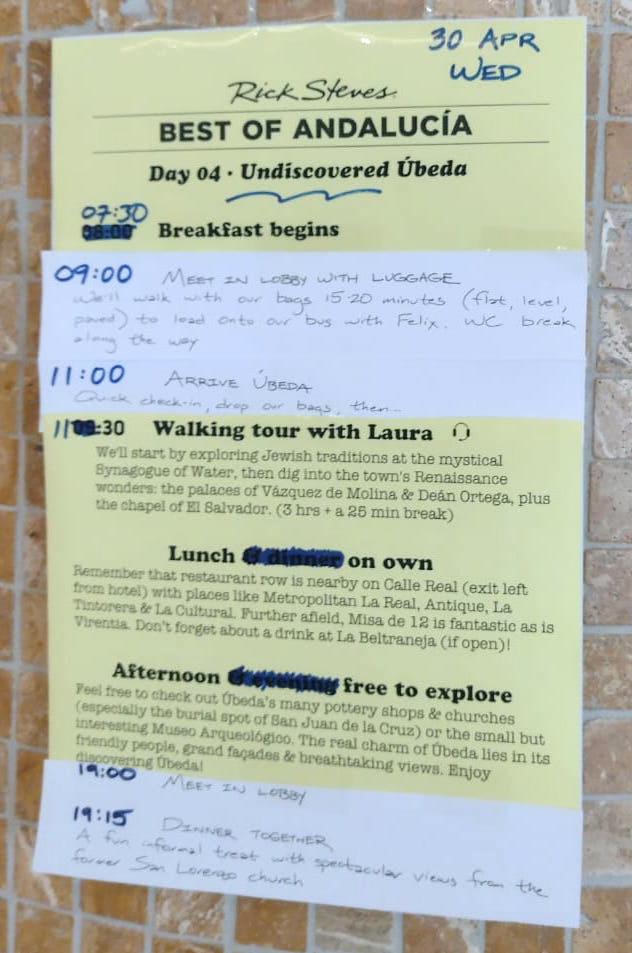 30 APR
WED
Rick Steves
BEST OF ANDALUCÍA
Day 04 · Undiscovered Úbeda
07:30
08:00 Breakfast begins
09:00 MEET IN LOBBY WITH LUGGAGE
We'll walk with our bags 15-20 minutes (flat, level,
paved) to load onto our bus with Felix. WC break
along the way
11:00 ARRIVE ÚBEDA
Quick check-in, drop our bags, then...
11:30 Walking tour with Laura
We'll start by exploring Jewish traditions at the mystical
Synagogue of Water, then dig into the town's Renaissance
wonders: the palaces of Vázquez de Molina & Deán Ortega, plus
the chapel of El Salvador. (3 hrs + a 25 min break)
Lunch & dinner on own
Remember that restaurant row is nearby on Calle Real (exit left
from hotel) with places like Metropolitan La Real, Antique, La
Tintorera & La Cultural. Further afield, Misa de 12 is fantastic as is
Virentia. Don't forget about a drink at La Beltraneja (if open)!
Afternoon & evening free to explore
Feel free to check out Úbeda's many pottery shops & churches
(especially the burial spot of San Juan de la Cruz) or the small but
interesting Museo Arqueológico. The real charm of Úbeda lies in its
friendly people, grand façades & breathtaking views. Enjoy
discovering Úbeda!
19:00 MEET IN LOBBY
19:15 DINNER TOGETHER
A fun informal treat with spectacular views from the
former San Lorenzo church